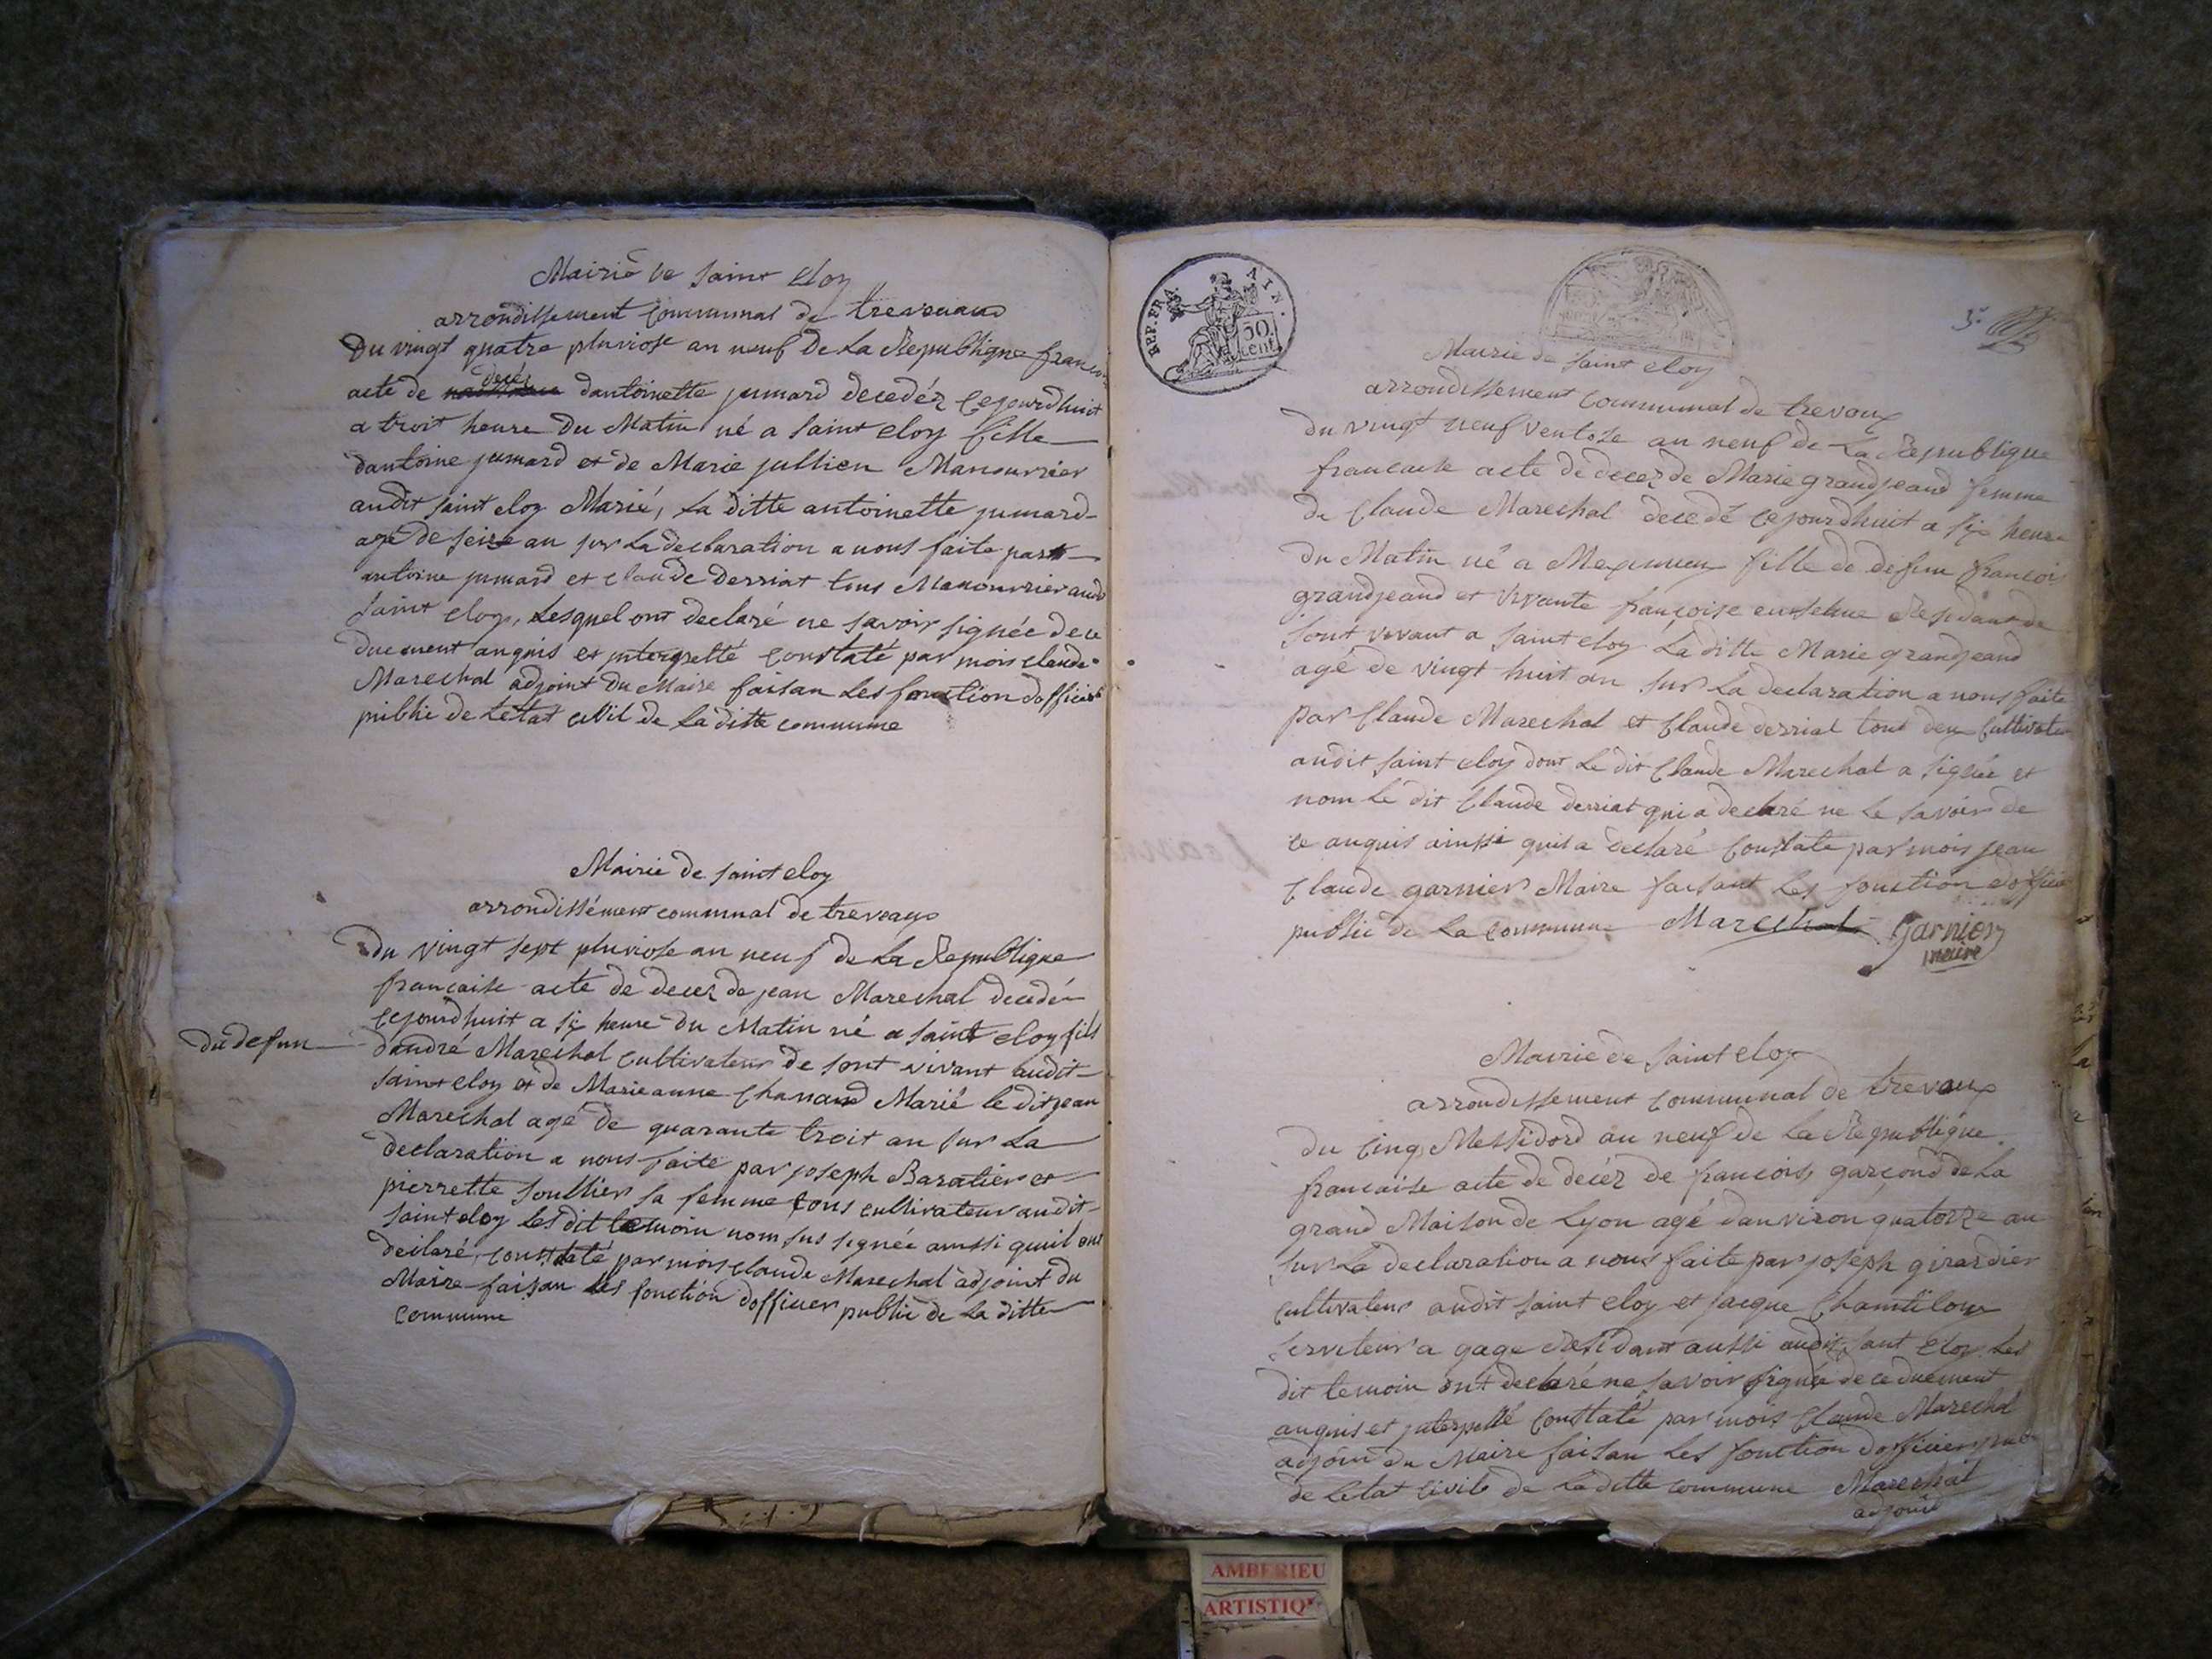 Mairie de saint eloy
arrondissement communal de trevoux
Du vingt quatre pluviose an neuf de la Republique
acte de decéz dantoinette jumard decedéz cejourdhuit
a troit heure du Matin né a saint eloy fille
dantoine jumard et de Marie jullien Manouvrier
audit saint eloy Marié, la ditte antoinette jumard
agé de seize an sur la declaration a nous faite par
antoine jumard et claude derriat tous Manouvrier
saint eloy, lesquel ont declaré ne savoir signée de ce
duement anquis et interpellé constaté par mois claude
Marechal adjoint du Maire faisan les fonction dofficier
publie de letat civil de la ditte commune
Mairie de saint eloy
arrondissément communal de trevoux
du vingt sept pluviose an neuf de la Republique
francaise acte de decez de jean Marechal decedér
cejourdhuit a six heure du Matin né a saint eloy fils
du defun
dandré Marechal cultivateur de sont vivant audit
saint eloy et de Marieanne Chanand Marié le dit jean
Marechal agé de quarante troit an sur la
declaration a nous faite par joseph Baratier et
pierrette soultier sa femme tous cultivateur audit
saint eloy les dit temoin nom sus signée ainssi quil ont
declaré, constaté par mois claude Marechal adjoint du
Maire faisan les fonction dofficier publie de la ditte
commune
REP. FRA. AIN.
50 cent.
5e
Mairie de saint eloy
arrondissement communal de trevoux
du vingt neuf ventose an neuf de la Republique
francaise acte de decez de Marie grandjeand femme
de Claude Marechal decedé cejourdhuit a six heure
du Matin né a Meximieu fille de defun francois
grandjeand et vivante françoise
sont vivant a saint eloy La ditte Marie grandjeand
agé de vingt huit an sur la declaration a nous faite
par Claude Marechal et Claude derriat tout deux Cultivateur
audit saint eloy dont le dit Claude Marechal a signée et
nom le dit Claude derriat qui a declaré ne le savoir de
ce anquis ainssi quil a declaré Constate par mois jean
Claude garnier Maire faisant les fonction dofficier
publie de la commune Marechal Garnier
maire
Mairie de saint eloy
arrondissement communal de trevoux
du Cinq Messidord an neuf de la Republique
francaise acte de decéz de francois garçond de la
grand Maison de Lyon agé danviron quatorze an
sur la declaration a nous faite par joseph girardier
cultivateur audit saint eloy et jacque
serviteur a gage Residant aussi audit saint eloy les
dit temoin ont declaré ne savoir signée de ce duement
anquis et interpellé constaté par mois Claude Marechal
adjoint du Maire faisan les fonction dofficier
de letat Civile de la ditte commune Marechal
adjoint
AMBERIEU
ARTISTIQ